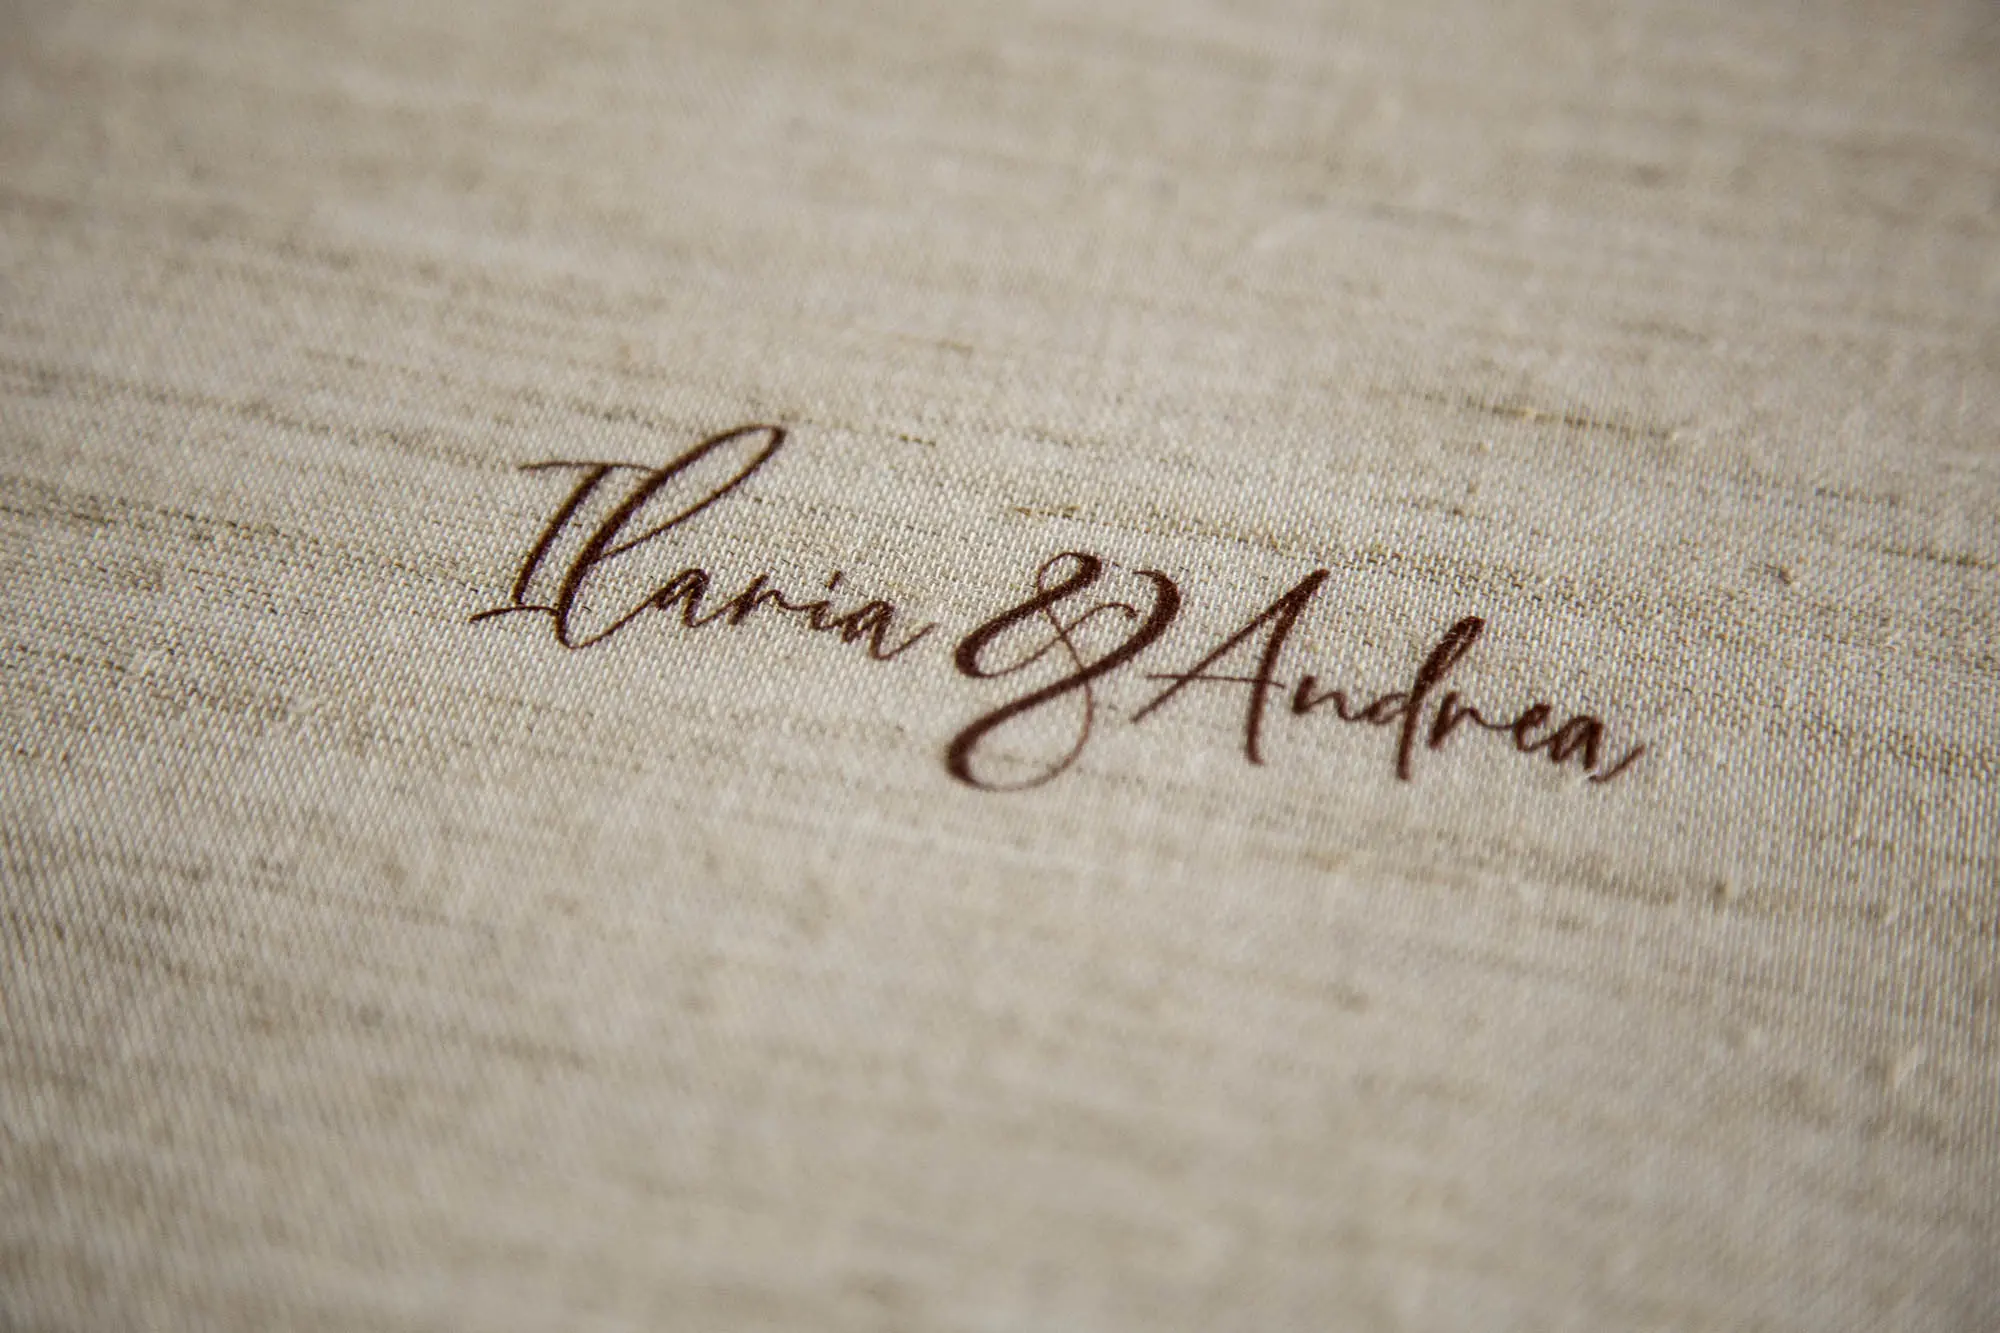 Ilaria & Andrea